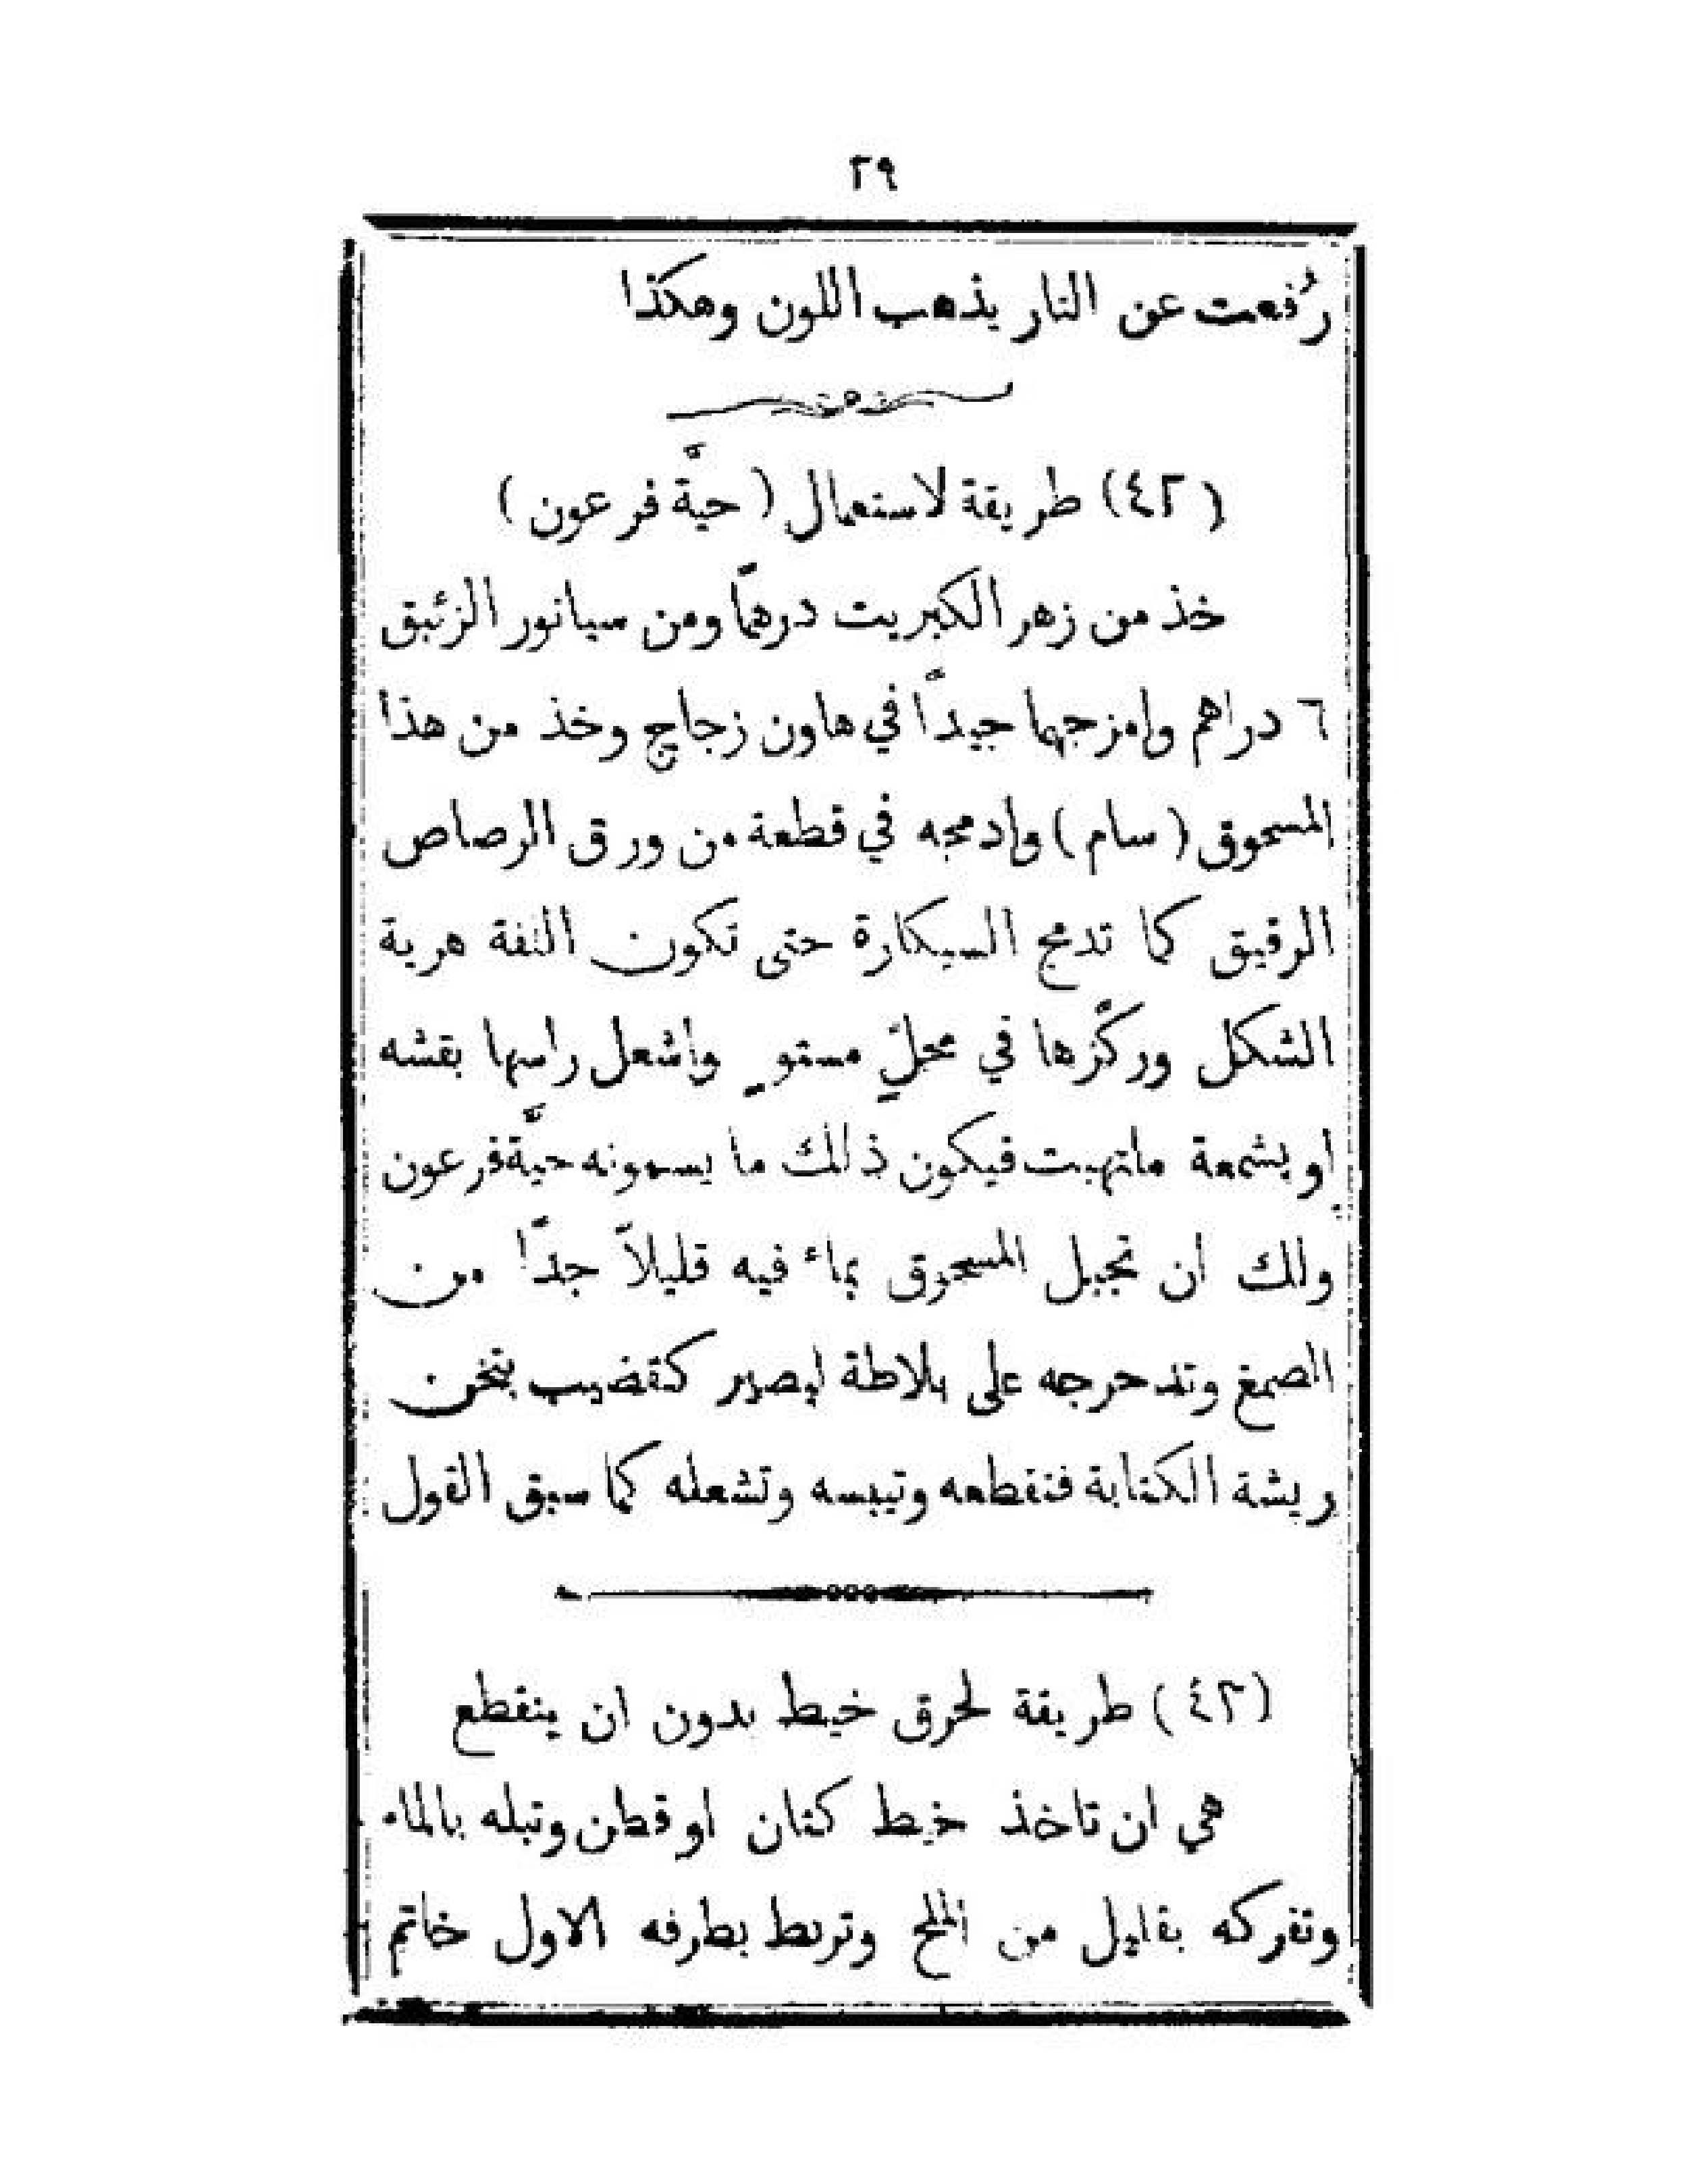 ٢٩
رُفعت عن النار يذهب اللون وهكذا
(٤٢) طريقة لاستعمال (حيَّة فرعون)
خذ من زهر الكبريت درهمًا ومن سيانور الزئبق
٦ دراهم وامزجهما جيدًا في هاون زجاج وخذ من هذا
المسحوق (سام) وادمجه في قطعة من ورق الرصاص
الرقيق كما تدمج السيكارة حتى تكون اللفة هرية
الشكل وركّزها في محلٍّ مستوٍ واشعل راسها بقشه
او بشمعة ماتهبت فيكون ذلك ما يسمونه حيَّة فرعون
ولك ان تجبل المسحوق بماء فيه قليلاً جدًّا من
الصمغ وتدحرجه على بلاطة ليصير كقضيب بثخن
ريشة الكتابة فتقطعه وتيبسه وتشعله كما سبق القول
(٤٢) طريقة لحرق خيط بدون ان ينقطع
هي ان تاخذ خيط كتان او قطن وتبله بالماء
وتفركه بقليل من الملح وتربط بطرفه الاول خاتم